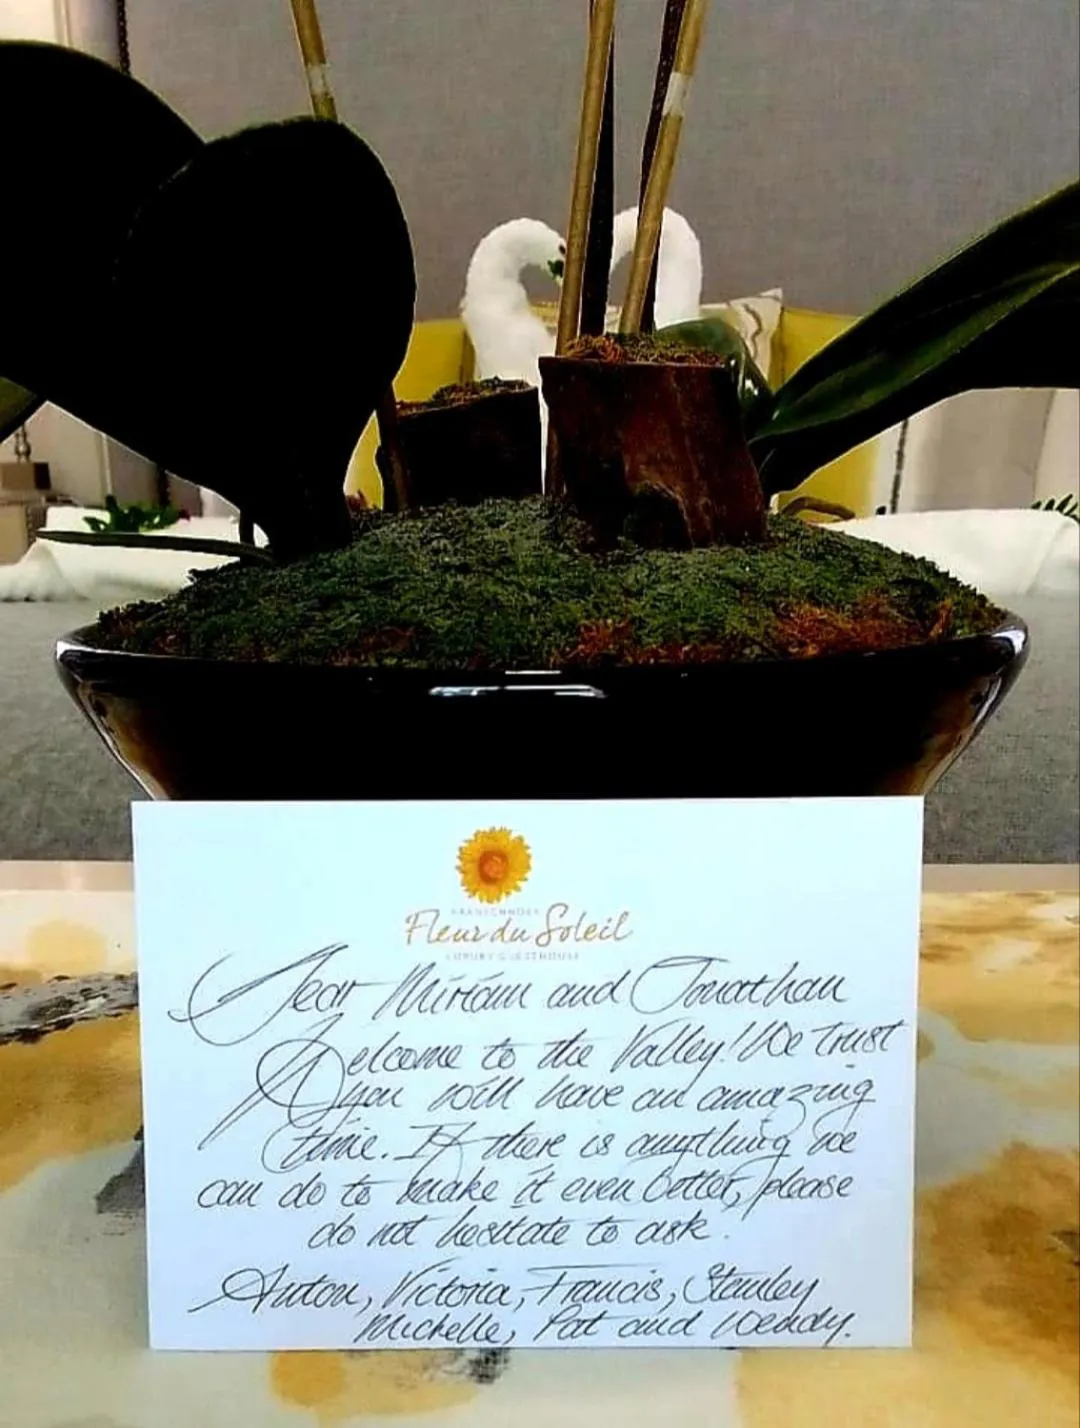 FRANSCHHOEK
Fleur du Soleil
LUXURY GUESTHOUSE
Dear Miriam and Jonathan
Welcome to the Valley! We trust
you will have an amazing
time. If there is anything we
can do to make it even better, please
do not hesitate to ask.
Anton, Victoria, Francis, Stanley
Michelle, Pat and Wendy.